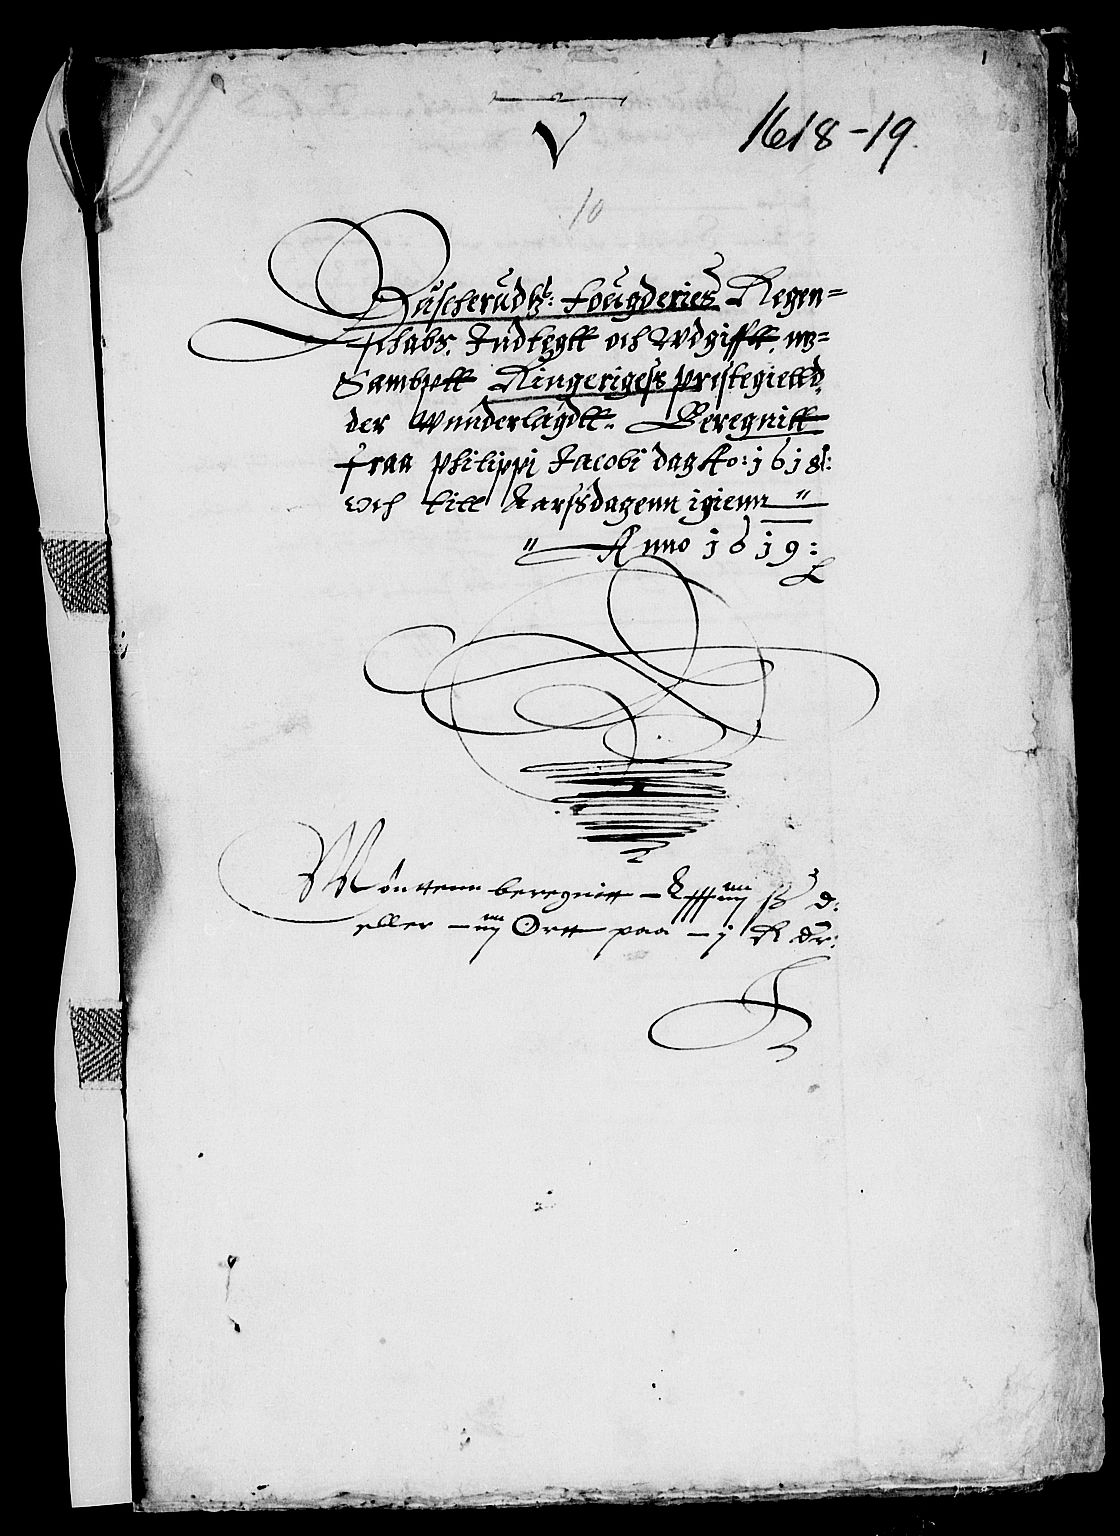 1
V
1618-19.
10
Buscherudtz: fougderies Regen=
schabs. Indtegtt och Wdgifftt, m3=
Sambptt Ringerigess prestegieltd
der Wnnderlagdtt. Beregnitt
fraa philippi Jacobi dag Ao: 1618:
Och till Aarssdagenn igienn "
" Anno 1619:
Mönttenn beregnitt ß d:
eller – iiij Ortt paa – j R dr: